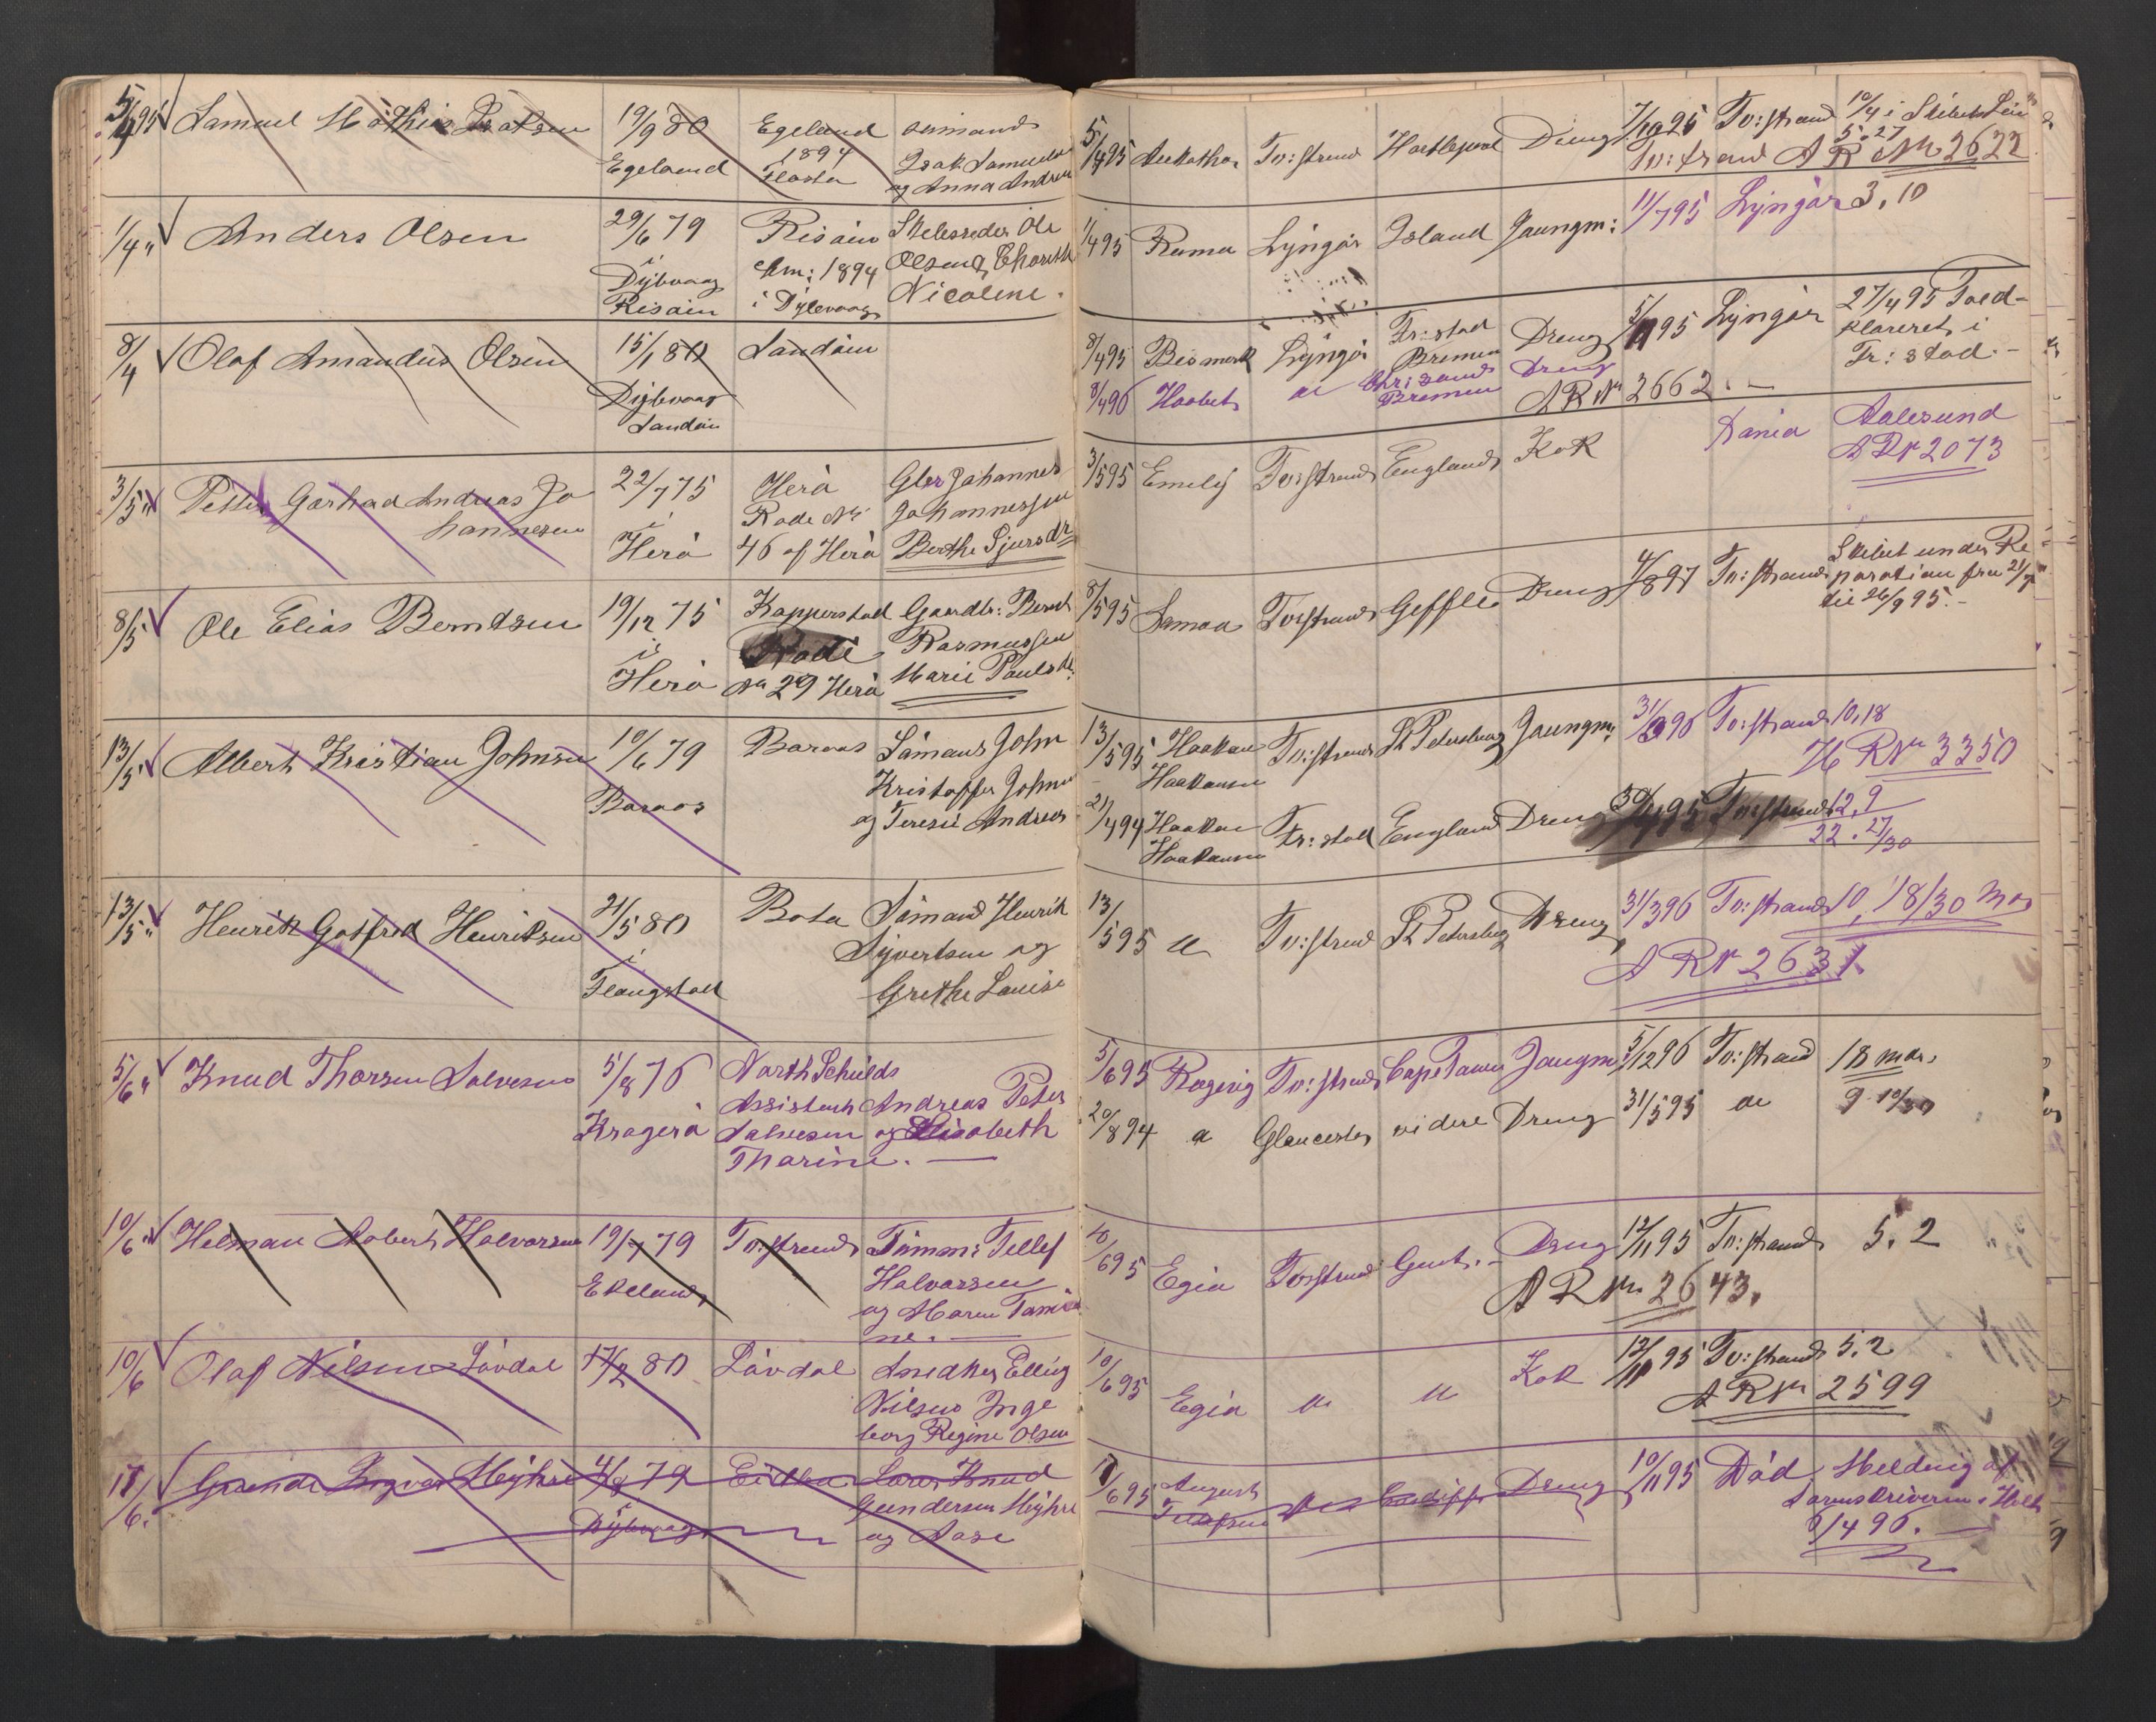 5/4 95 Samuel Mathias Isaksen 19/9 80 Egeland sømand
Egeland 1894 Isak Samuelsen
Flosta og Anna Andrea
1/4 " Anders Olsen 29/6 79 Risøen Skibsreder Ole
i Dybvaag Anm: 1894 Olsen og Thorethe
Risøen i Dybvaag Nicoline.
8/4 Olaf Amandus Olsen 15/1 80 Sandøen
Dybvaag
Sandøen
3/5 " Petter Gerhad Andreas Jo 22/7 75 Herø Johannes
hannesen i Rode № Johannessen
Herø 46 af Herø Berthe Sjursdr
8/5 Ole Elias Berntsen 19/12 75 Kopperstad Gaardbr: Bernt
i Rode Rasmussen
Herø № 29 Herø Marie Paulsdr:
13/5 " Albert Kristian Johnsen 10/6 79 Boraas Sømand John
Boraas Kristoffer Johnsen
og Teresie Andreas
13/5 " Henrik Gotfred Henriksen 21/5 80 Bota Sømand Henrik
i Syvertsen og
Flangstad Grethe Louise
5/6 " Knud Thorsen Salvesen 5/8 76 North Schields
Assistent Andreas Peter
Kragerø Salvesen og Elisabeth
Tharine. —
10/6 " Helman Robert Halvorsen 19/7 79 Tv:strand Tømm: Tellef
Ekeland Halvorsen
og Maren Tomi
ne. —
10/6 Olaf Nilsen Løvdal 17/2 80 Løvdal Snedker Elling
Nilsen Inge
borg Regine Olsen
17/6. Gunnar Ingvar Myhre 4/8 79 Eidbo Lods Knud
i Dybvaag Gundersen Myhre
og Aase
5/4 95 Tv:strand Hartlepool Dreng 7/10 95 Tv:strand 10/4 i Skibets
5.27
Tv:strand A R № 2622
1/4 95 Rama Lyngør Island Jaungm: 11/7 95 Lyngør 3,10
8/4 95 Bismark Lyngør Fr:stad Bremen Dreng 5/11 95 Lyngør 27/4 95 Told-
klareret i
Fr:stad. —
8/4 96 Haabet " Chr:sand Bremen Dreng
A R № 2662. —
3/5 95 Emely Tv:strand England Kok Dania Aalesund
A R № 2073
8/5 95 Samoa Tv:strand Geffle Dreng 4/8 97 Tv:strand Skibet under Re
paration fra 21/7
til 26/9 95. —
13/5 95 Haakon Haakansen Tv:strand St Petersburg Jaungm: 31/3 96 Tv:strand 10,18
H R № 3350
21/4 94 Haakon Haakansen Fr:stad England Dreng 30/4 95 Tv:strand 12,9
22. 27/30
13/5 95 " Tv:strand St Petersburg Dreng 31/3 96 Tv:strand 10, 18/30 Mdr
A R № 2631
5/6 95 Tv:strand Cape Town Jaungm: 5/12 96 Tv:strand 18 mdr.
20/8 94 " Glaucester videre Dreng 31/5 95 " 9 10/30
10/6 95 Egia Tv:strand Gent. — Dreng 12/11 95 Tv:strand 5. 2
A R № 2643.
10/6 95 Egia " " Kok 12/11 95 Tv:strand 5.2
A R № 2599
17/6 95 August " Cardiff Dreng 10/11 95 Død, Melding af
Sorenskriveren i Holt
1/4 96. —